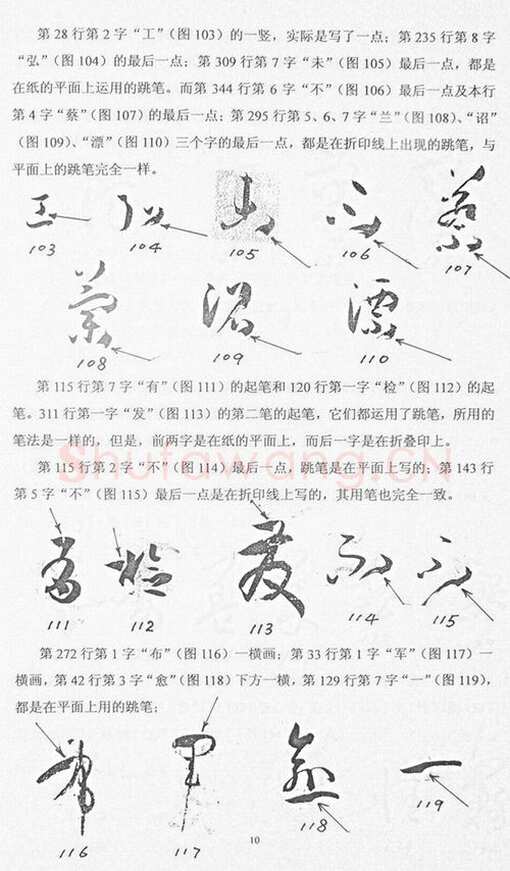 第28行第2字“工”（图103）的一竖，实际是写了一点；第235行第8字
“弘”（图104）的最后一点；第309行第7字“未”（图105）最后一点，都是
在纸的平面上运用的跳笔。而第344行第6字“不”（图106）最后一点及本行
第4字“蔡”（图107）的最后一点；第295行第5、6、7字“兰”（图108）、“诏”
（图109）、“漂”（图110）三个字的最后一点，都是在折印线上出现的跳笔，与
平面上的跳笔完全一样。
103 104 105 106 107
108 109 110
第115行第7字“有”（图111）的起笔和120行第一字“检”（图112）的起
笔。311行第一字“发”（图113）的第二笔的起笔，它们都运用了跳笔，所用的
笔法是一样的，但是，前两字是在纸的平面上，而后一字是在折叠印上。
Shufawang.CN
第115行第2字“不”（图114）最后一点，跳笔是在平面上写的；第143行
第5字“不”（图115）最后一点是在折印线上写的，其用笔也完全一致。
111 112 113 114 115
第272行第1字“布”（图116）一横画；第33行第1字“军”（图117）一
横画，第42行第3字“愈”（图118）下方一横，第129行第7字“一”（图119），
都是在平面上用的跳笔；
116 117 118 119
10